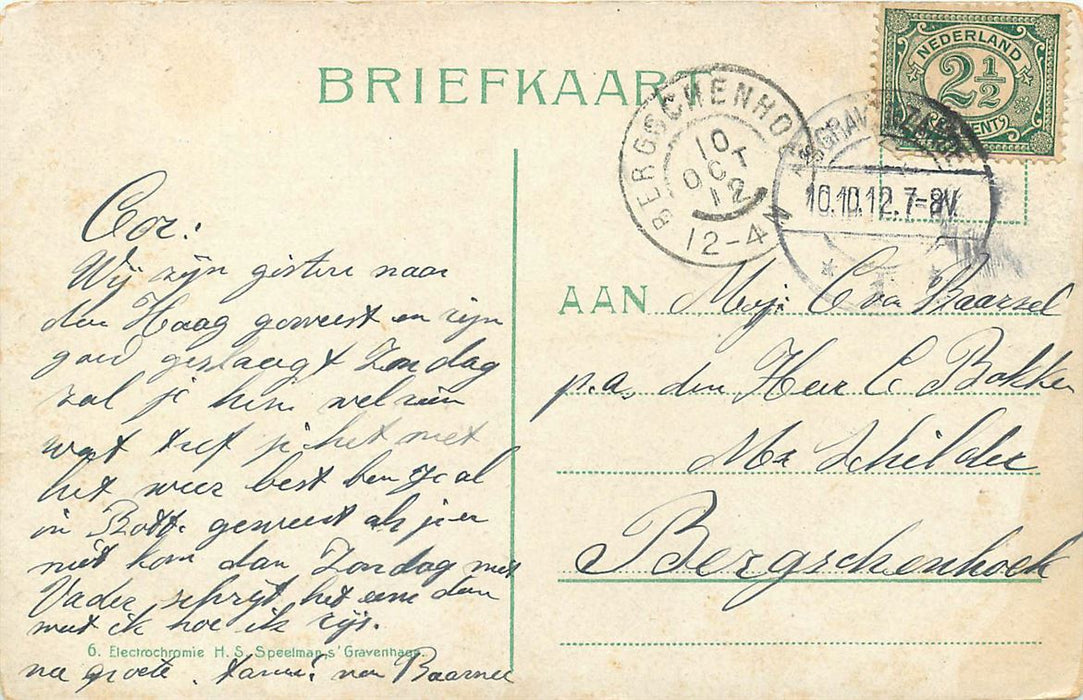 BRIEFKAART
NEDERLAND
2½
CENT
BERGSCHENHOEK
10
OCT
12
12-4N
'SGRAVENZANDE
10.10.12.7-8V.
Cor:
Wij zijn gistere naar
den Haag geweest en zijn
goed geslaagt Zondag
zal je hem wel zien
wat tref je het met
het weer best ben je al
in Rott. geweest als je er
niet kom dan Zondag met
Vader schrijf het eens dan
weet ik hoe ik rijs.
na groete. van Baarsel
AAN Mej. C van Baarsel
p.a. den Heer C Bokker
Mr Schilder
Bergschenhoek
6. Electrochromie H. S. Speelman, s' Gravenhage.